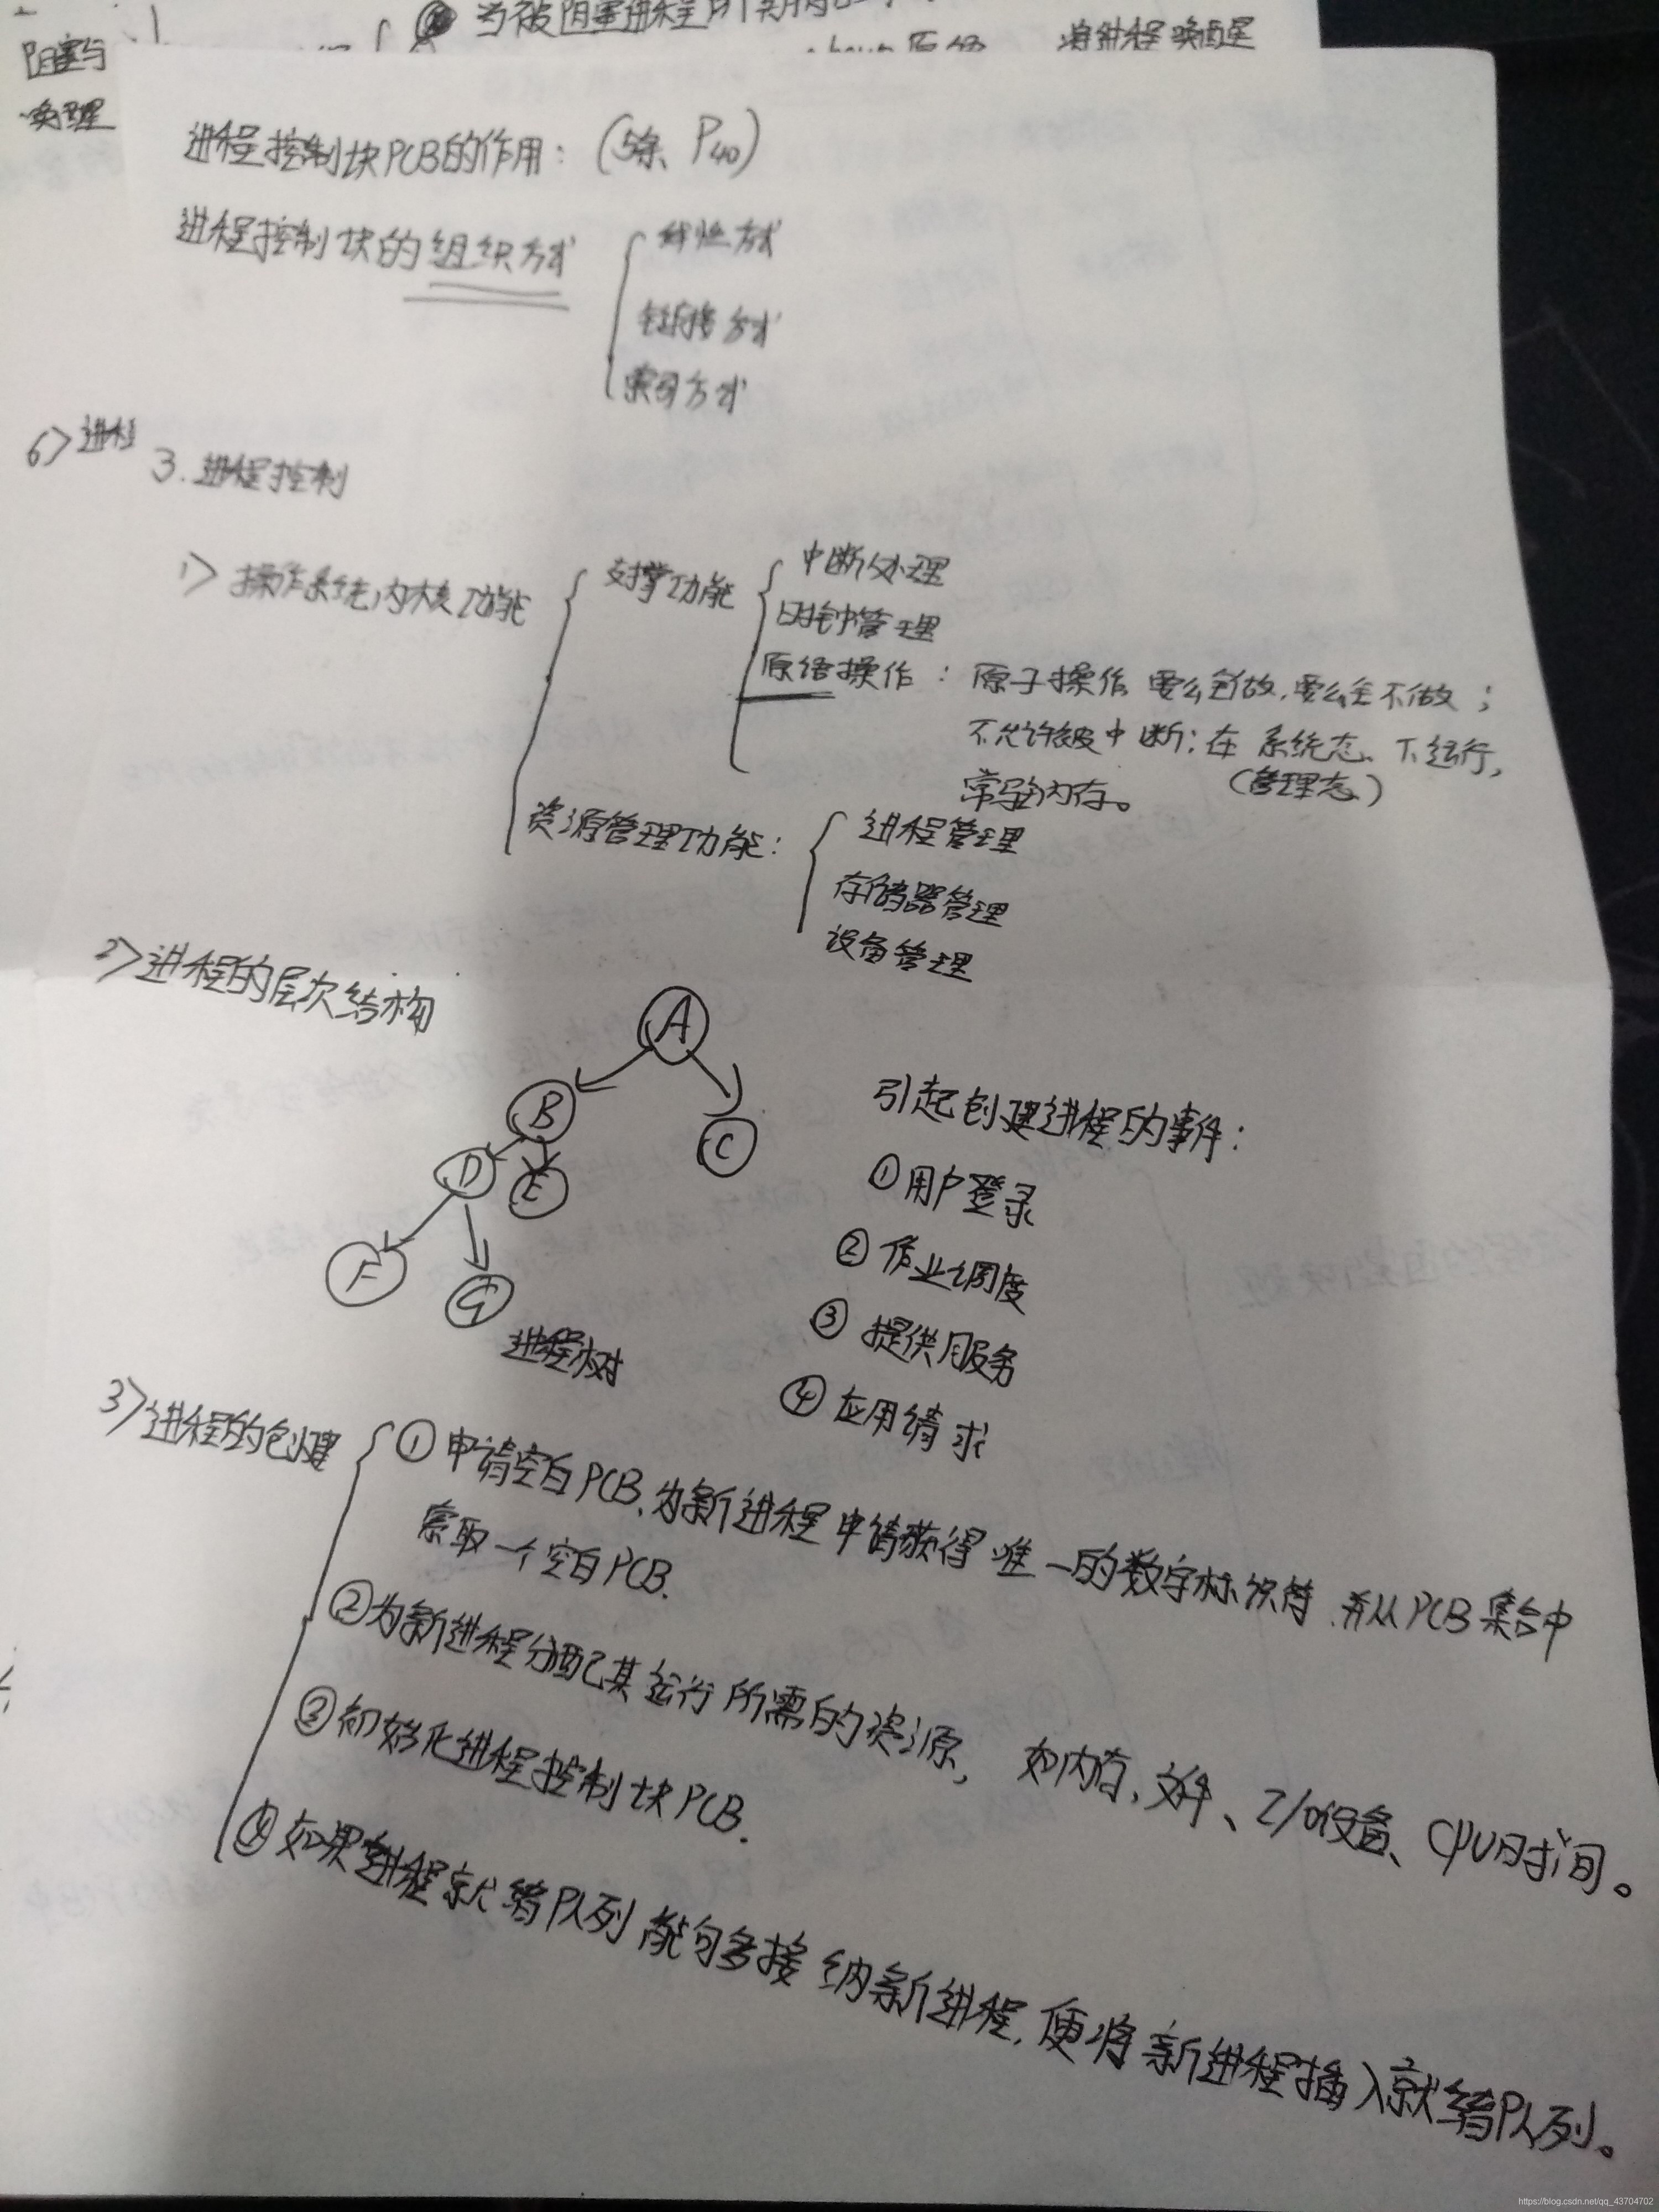 当被阻塞进程所期待
原语 将进程唤醒
阻塞与
唤醒
进程控制块PCB的作用：（5条、P40）
进程控制块的组织方式
线性方式
链接方式
索引方式
6> 进程
3.进程控制
1> 操作系统内核功能
支撑功能
中断处理
时钟管理
原语操作：原子操作 要么全做,要么全不做；
不允许被中断；在系统态、下运行，
（管理态）
常驻内存。
资源管理功能：
进程管理
存储器管理
设备管理
2>进程的层次结构
A
B
C
D
E
F
G
进程树
引起创建进程的事件：
①用户登录
② 作业调度
③ 提供服务
④ 应用请求
3>进程的创建
① 申请空白PCB,为新进程申请获得唯一的数字标识符,并从PCB集合中
索取一个空白PCB.
②为新进程分配其运行所需的资源，如内存,文件、I/O设备、CPU时间。
③初始化进程控制块PCB.
④如果进程就绪队列能够接纳新进程,便将新进程插入就绪队列。
https://blog.csdn.net/qq_43704702